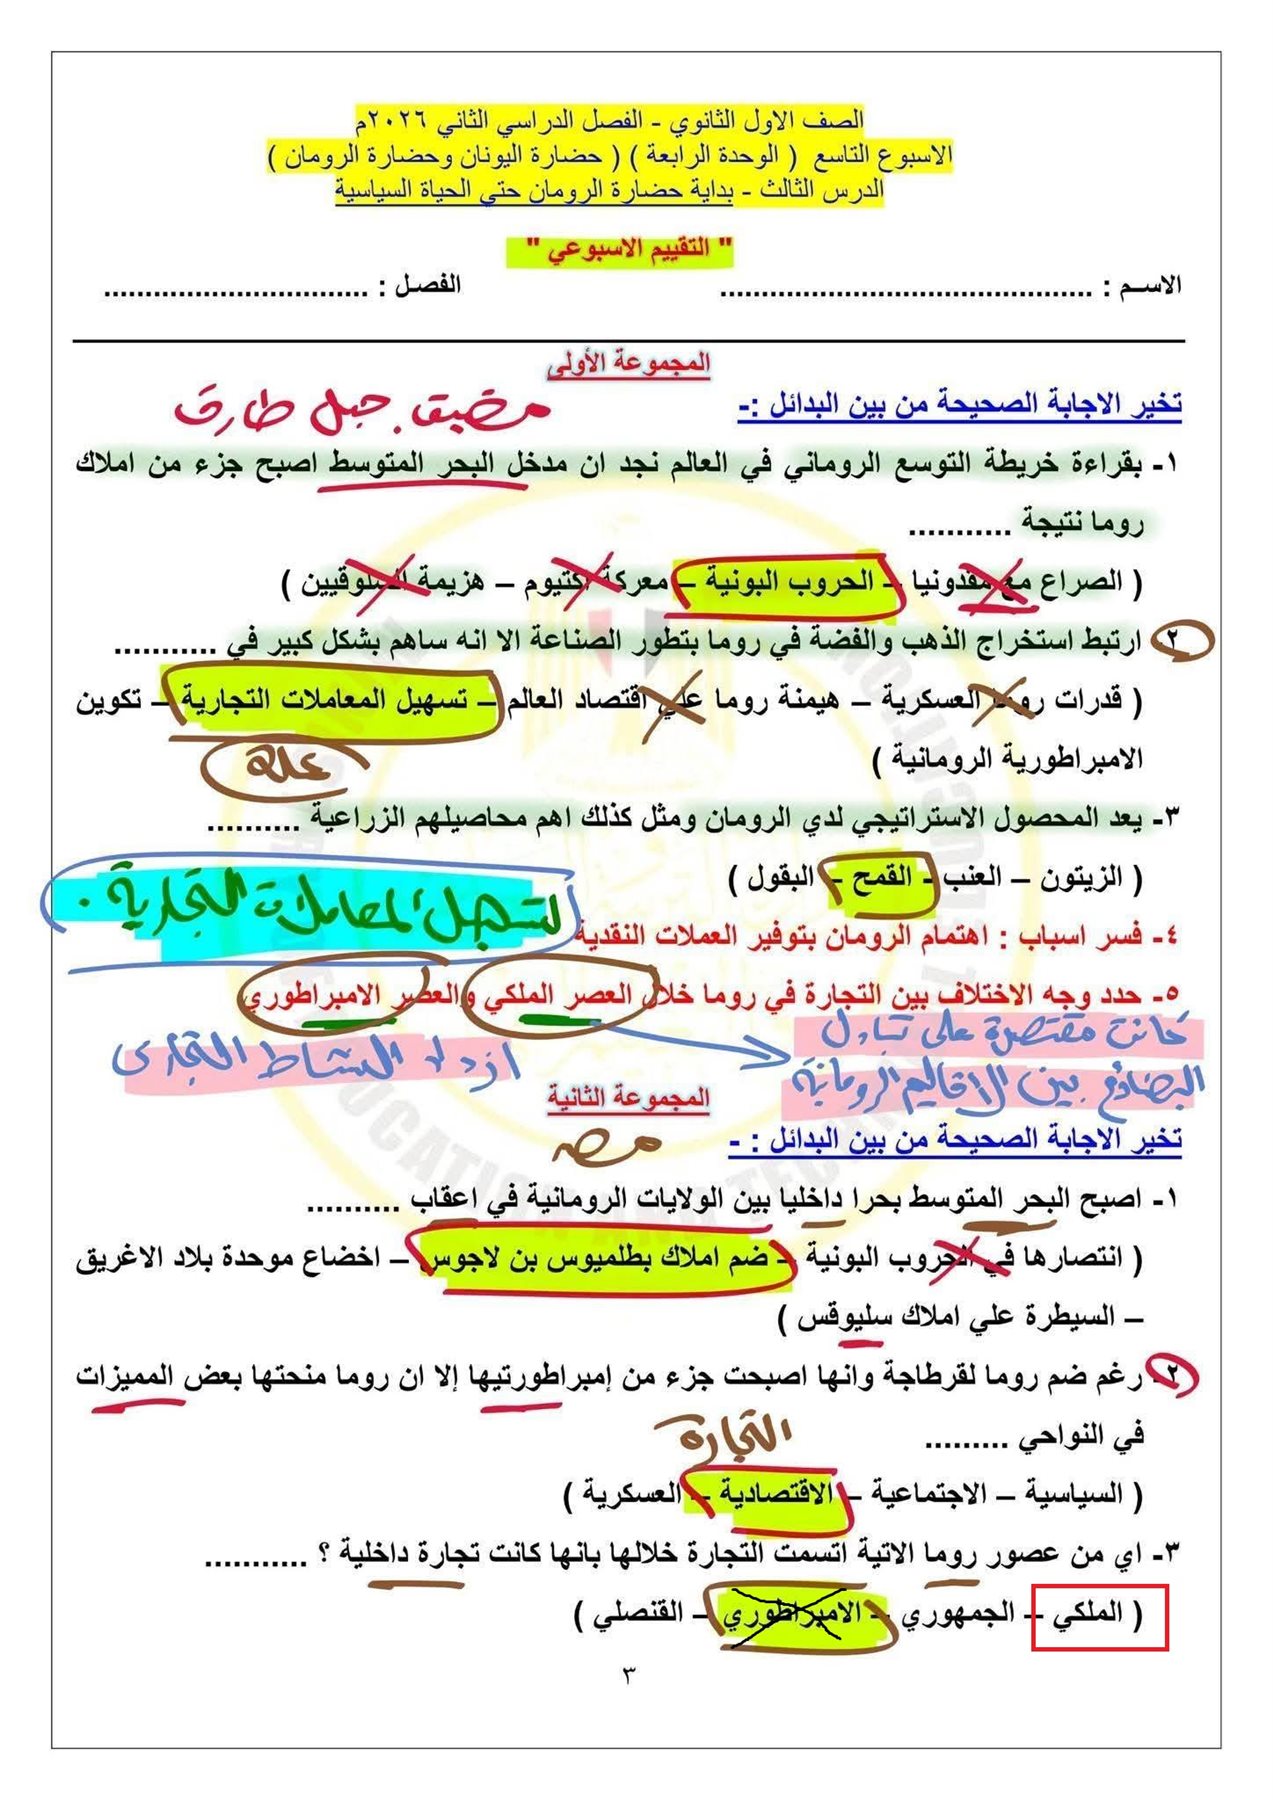 الصف الاول الثانوي - الفصل الدراسي الثاني ٢٠٢٦م
الاسبوع التاسع ( الوحدة الرابعة ) ( حضارة اليونان وحضارة الرومان )
الدرس الثالث - بداية حضارة الرومان حتي الحياة السياسية
" التقييم الاسبوعي "
الاسـم : ............................................. الفصل : ................................
المجموعة الأولى
تخير الاجابة الصحيحة من بين البدائل :-
مضيق جبل طارق
١- بقراءة خريطة التوسع الروماني في العالم نجد ان مدخل البحر المتوسط اصبح جزء من املاك
روما نتيجة ...........
( الصراع مع مقدونيا – الحروب البونية – معركة اكتيوم – هزيمة السلوقيين )
٢- ارتبط استخراج الذهب والفضة في روما بتطور الصناعة الا انه ساهم بشكل كبير في ...........
( قدرات روما العسكرية – هيمنة روما علي اقتصاد العالم – تسهيل المعاملات التجارية – تكوين
الامبراطورية الرومانية )
عملة
٣- يعد المحصول الاستراتيجي لدي الرومان ومثل كذلك اهم محاصيلهم الزراعية ..........
( الزيتون – العنب – القمح – البقول )
لتسهيل المعاملات التجارية .
٤- فسر اسباب : اهتمام الرومان بتوفير العملات النقدية
٥- حدد وجه الاختلاف بين التجارة في روما خلال العصر الملكي والعصر الامبراطوري
كانت مقتصرة على تبادل
البضائع بين الاقاليم الرومانية
ازداد النشاط التجارى
المجموعة الثانية
تخير الاجابة الصحيحة من بين البدائل : -
مصر
١- اصبح البحر المتوسط بحرا داخليا بين الولايات الرومانية في اعقاب ..........
( انتصارها في الحروب البونية – ضم املاك بطلميوس بن لاجوس – اخضاع موحدة بلاد الاغريق
– السيطرة علي املاك سليوقس )
٢- رغم ضم روما لقرطاجة وانها اصبحت جزء من إمبراطورتيها إلا ان روما منحتها بعض المميزات
في النواحي .........
التجارة
( السياسية – الاجتماعية – الاقتصادية – العسكرية )
٣- اي من عصور روما الاتية اتسمت التجارة خلالها بانها كانت تجارة داخلية ؟ ...........
( الملكي – الجمهوري – الامبراطوري – القنصلي )
٣